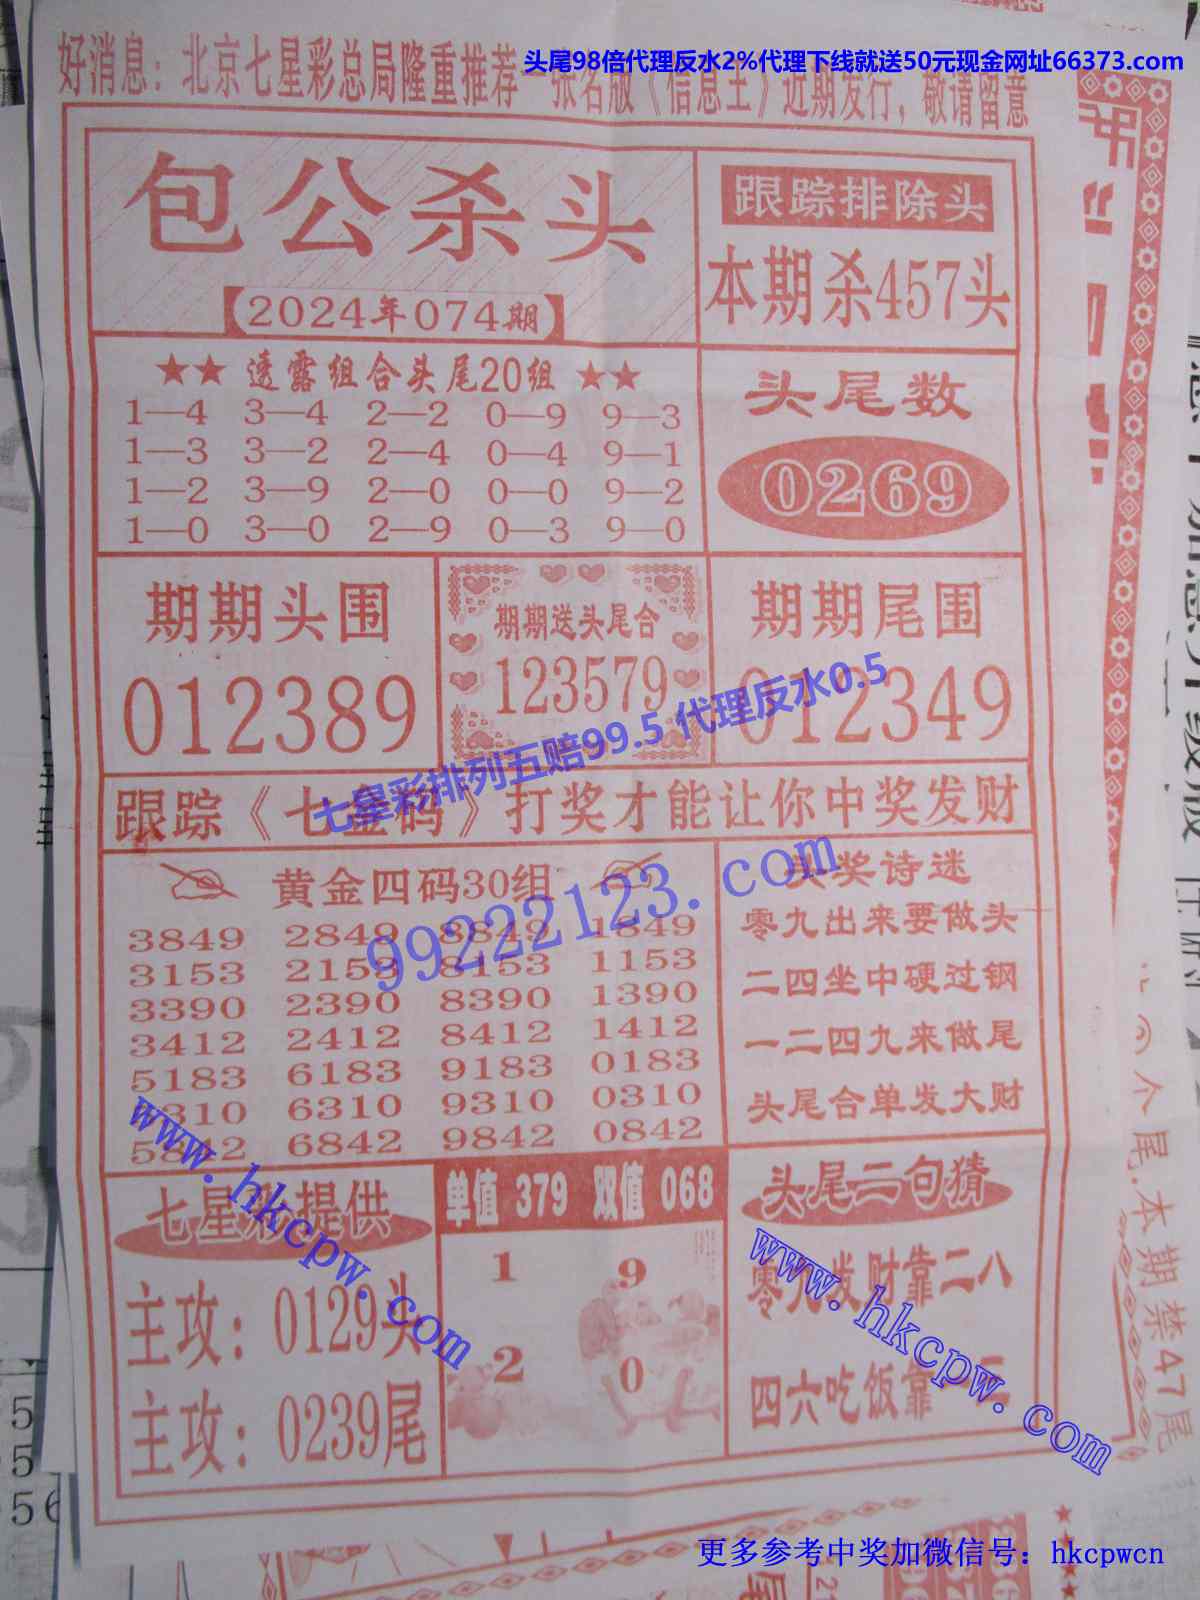 头尾98倍代理反水2%代理下线就送50元现金网址66373.com
好消息：北京七星彩总局隆重推荐一张名版《信息王》近期发行，敬请留意
包公杀头
【2024年074期】
跟踪排除头
本期杀457头
★★ 透露组合头尾20组 ★★
1—4 3—4 2—2 0—9 9—3
1—3 3—2 2—4 0—4 9—1
1—2 3—9 2—0 0—0 9—2
1—0 3—0 2—9 0—3 9—0
头尾数
0269
期期头围
012389
期期送头尾合
123579
期期尾围
012349
七星彩排列五赔99.5 代理反水0.5
跟踪《七星码》打奖才能让你中奖发财
黄金四码30组
3849 2849 8849 1849
3153 2153 8153 1153
3390 2390 8390 1390
3412 2412 8412 1412
5183 6183 9183 0183
5310 6310 9310 0310
5842 6842 9842 0842
99222123.com
头奖诗迷
零九出来要做头
二四坐中硬过钢
一二四九来做尾
头尾合单发大财
七星彩提供
主攻：0129头
主攻：0239尾
www.hkcpw.com
单值 379 双值 068
1 9
2 0
头尾二句猜
零九发财靠二八
四六吃饭靠
www.hkcpw.com
个尾.本期禁47尾
更多参考中奖加微信号：hkcpwcn